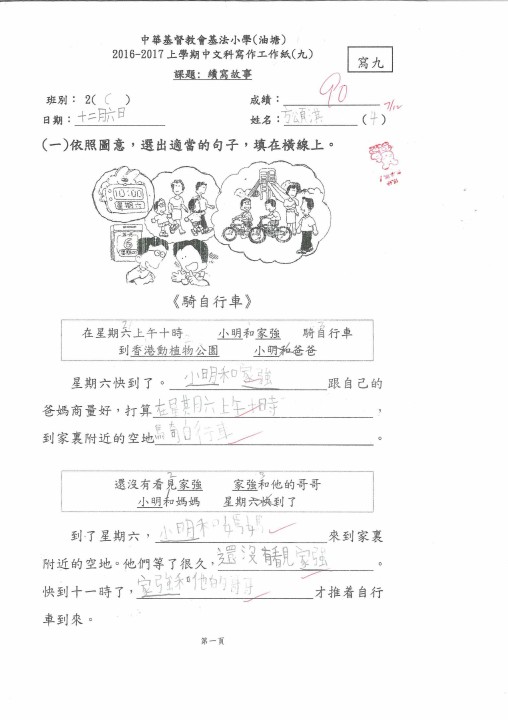 中華基督教會基法小學(油塘)
2016-2017上學期中文科寫作工作紙(九)
寫九
課題：續寫故事
班別： 2( C )
成績： 90
日期： 十二月六日
姓名： (十)
(一)依照圖意，選出適當的句子，填在橫線上。
10:00
星期六
6
《騎自行車》
在星期六上午十時 小明和家強 騎自行車
到香港動植物公園 小明和爸爸
星期六快到了。小明和家強跟自己的
爸媽商量好，打算在星期六上午十時，
到家裏附近的空地騎自行車。
還沒有看見家強 家強和他的哥哥
小明和媽媽 星期六快到了
到了星期六，小明和媽媽來到家裏
附近的空地。他們等了很久，還沒有看見家強。
快到十一時了，家強和他的哥哥才推着自行
車到來。
第一頁